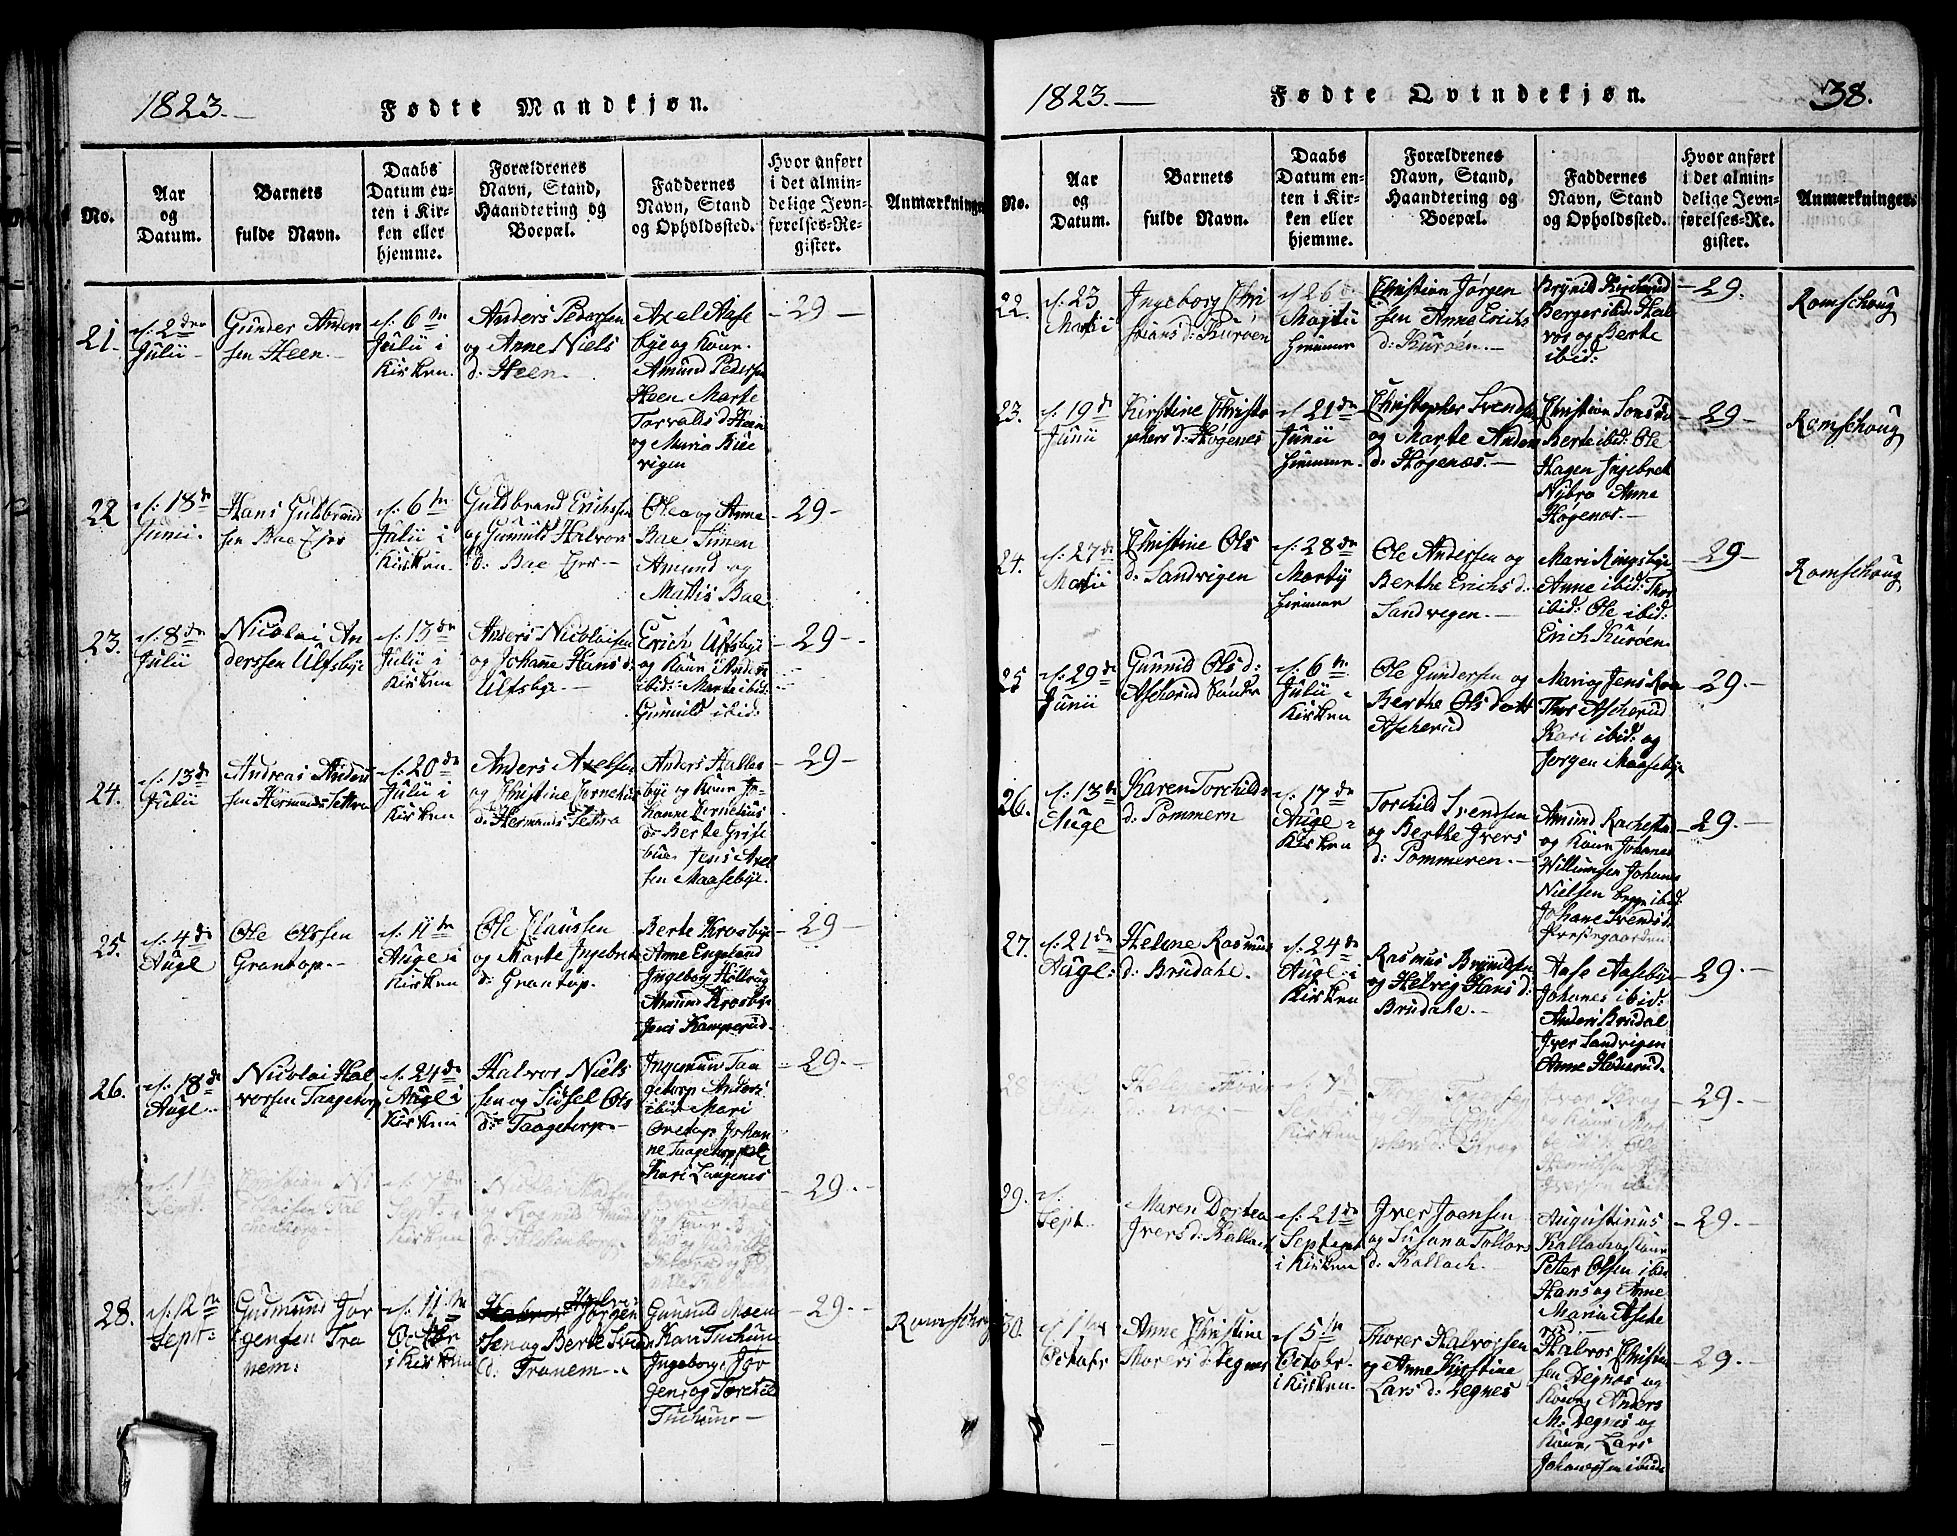 1823.
Fødte Mandkjøn.
No.
Aar
og
Datum.
Barnets
fulde Navn.
Daabs
Datum en-
ten i Kir-
ken eller
hjemme.
Forældrenes
Navn, Stand,
Haandtering og
Boepæl.
Faddernes
Navn, Stand
og Opholdssted.
Hvor anført
i det almin-
delige Jevn-
førelses-Re-
gister.
Anmærkninger
21.
d: 2den
Julii
Gunder Ander
sen Heen
d: 6te
Julii i
Kirken.
Anders Pedersen
og Anne Niels
d: Heen.
Axel Aase
bye og kone
Amund Pedersen
Heen Marte
Torvalds d: Heen
og Maria
vigen
29
22
d: 18de
Junii.
Hans Guldbrand
sen Bae
d: 6te
Julii i
Kirken.
Guldbrand Erichsen
og Gunnild Halvors
d: Bae
Ole og Anne
Bae Simen
Amund og
Mathis Bae
29
23.
d: 8de
Julii
Nicolai An
derssen Ulfsbye
d: 13de
Julii i
Kirken
Anders Nicolaisen
og Johanne Hans d:
Ulfsbye.
Erich Ulfsbye
og Kone
ibid: Marte ibid:
Gunnild ibid:
29
24.
d: 13de
Julii
Andreas Anders
sen Hermands Settra
d: 20de
Julii i
Kirken
Anders Axelsen
og Christine Cornelius
d: Hermands Settra
Anders Halles
bye og Kone Jo
hanne Cornelius
d: Berte
Jens Axel
sen Maasebye.
29
25.
d: 4de
Augt
Ole Olssen
Grantop.
d: 11te
Augt i
Kirken
Ole Claussen
og Marte Ingebret
d: Grantop.
Berte Krosbye
Anne Engelund
Ingeborg
Amund Krosbye
Jens Kamperud.
29
26.
d: 18de
Augt
Nicolai Hal
vorsen Taagetorp
d: 24de
Augt i
Kirken
Halvor Niels
sen og Sidsel Ols
d: Taagetorp
Ingemund Taa
getorp Anders
ibid: Mari
Johan
ne Taagetorp
Kari Langenes
29.
d: 1
Sept.
d: 7de
Sept. i
Kirken
29.
28.
d: 12te
Sept:
Gudmund Jør
gensen Tra
nem:
d: 11te
Octbr
i Kirken
Jørgen
sen og Berte
d: Tranem
Gunild Moen
Kari
Ingeborg Jør
gens og
29.
Romschoug
1823.
Fødte Qvindekjøn.
38.
No.
Aar
og
Datum.
Barnets
fulde Navn.
Daabs
Datum en-
ten i Kir-
ken eller
hjemme.
Forældrenes
Navn, Stand,
Haandtering og
Boepæl.
Faddernes
Navn, Stand
og Opholdssted.
Hvor anført
i det almin-
delige Jevn-
førelses-Re-
gister.
Anmærkninger.
22.
d: 23
Martii
Ingeborg Chri
stians d: Kurøen
d: 26de
Martii
hjemme
Christian Jørgen
sen Anne Erichs
d: Kurøen.
Brynild
Berger ibid: Hal
vor og Berte
ibid:
29.
Romschoug
23.
d: 19de
Junii
Kirstine Christo
phers d: Høgenes
d: 21de
Junii
hjemme.
Christopher Svendsen
og Marte Anders
d: Høgenæs.
Christian
Berte ibid: Ole
Hagen Ingebret
Nybro Anne
Høgenes.
29
Romschoug
24.
d: 27de
Martii
Christine Ols
d: Sandvigen
d: 28de
Martij
hjemme
Ole Andersen og
Berthe Erichs d:
Sandvigen.
Mari Ringsbye
Anne ibid: Thor
ibid: Ole ibid:
Erich Kurøen.
29
Romschoug
25
d: 29de
Junii
Gunnild Ols d:
Ascherud
d: 6te
Julii i
Kirken
Ole Gundersen og
Berthe Ols datt
Ascherud
Mari og Jens
Thor Ascherud
Kari ibid: og
Jørgen Maasebye
29.
26.
d: 13de
Augt
Karen Torchilds
d: Pommern
d: 17de
Augt i
Kirken
Torchild Svendsen
og Berthe Ivers
d: Pommeren.
Amund
og Kone Johanes
Willumsen Johanes
Nielsen
Johane Svends d:
Præstegaarden
29.
27.
d: 21de
Augt:
Helene Rasmus
d: Brudahl.
d: 24de
Augt: i
Kirken
Rasmus Brynildsen
og Helvig Hans d:
Brudahl.
Aase Aasebye
Johanes ibid:
Anders Brudal
Iver Sandvigen
Anne
29.
28
d: 7de
Septbr i
Kirken
29.
29.
d:
Sept.
Maren Dortea
Ivers d: Kallach
d: 21de
Septbr
i Kirken
Iver Joensen
og Susana Tollers
d: Kallach.
Augustinus
Kallach og Kone
Peter Olsen ibid
Hans og Anne
Maria Asche
rud.
29.
30.
d: 1ste
Octobr
Anne Christine
Thorers d: Degnes
d: 5te
Octobr.
i Kirken.
Thorer Halvorsen
og Anne Kirstine
Lars d: Degnes
Halvor Christen
sen Degnes og
Kone, Anders
M: Degnes og
Kone, Lars
Johanessen ibid:
29.